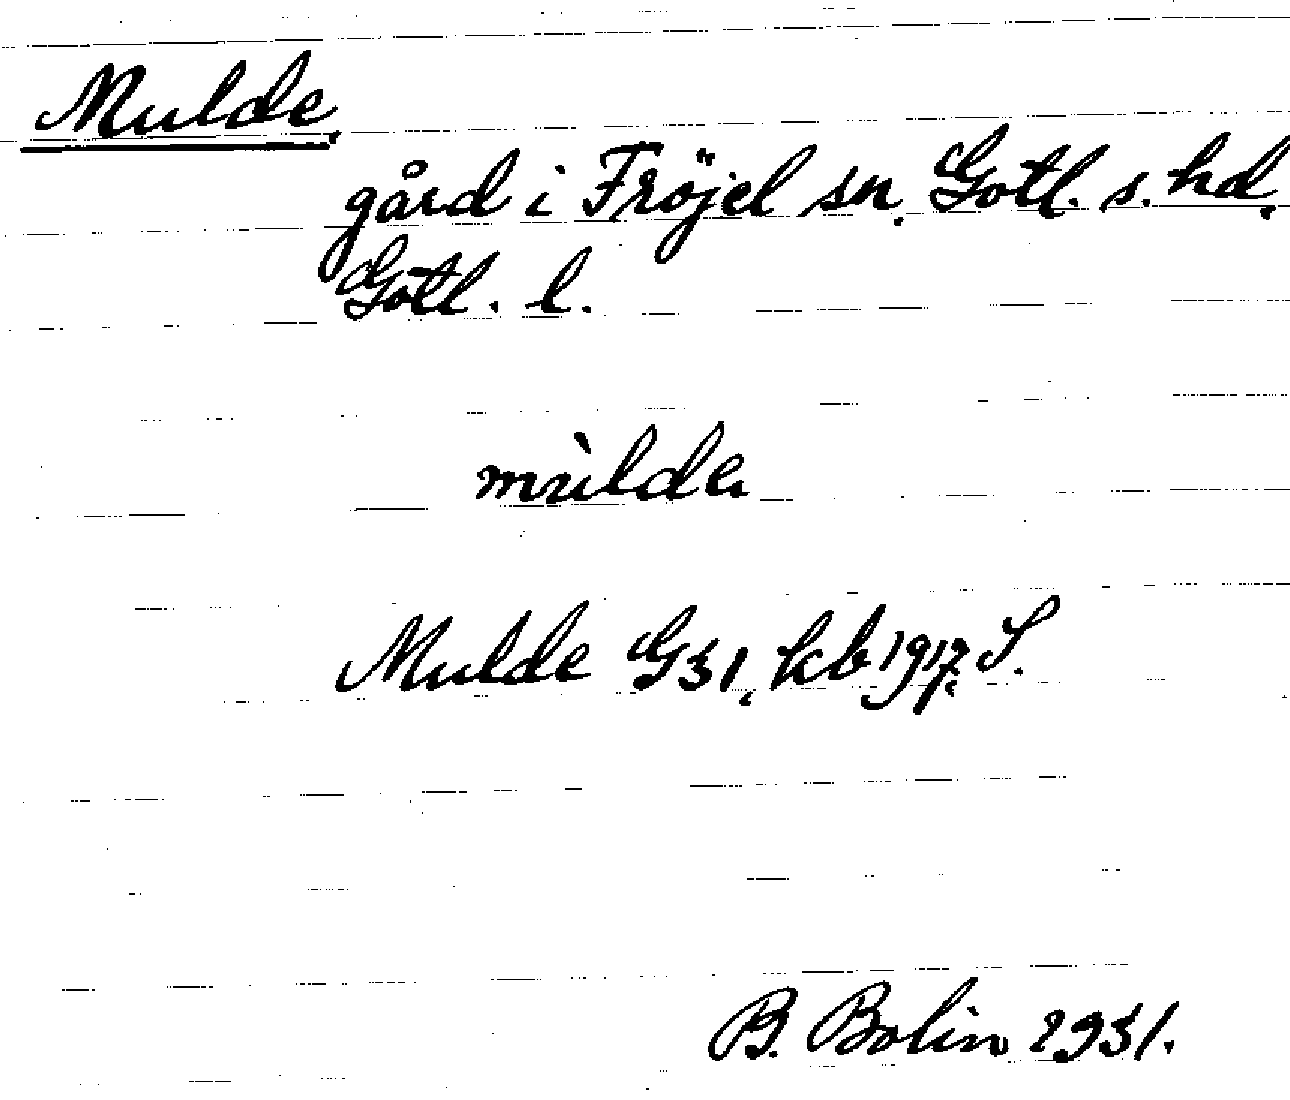 Mulde,
gård i Fröjel sn. Gotl. s. hd.
Gotl. l.
mùlde
Mulde G31, kb 1917. S.
B. Bolin 1931.